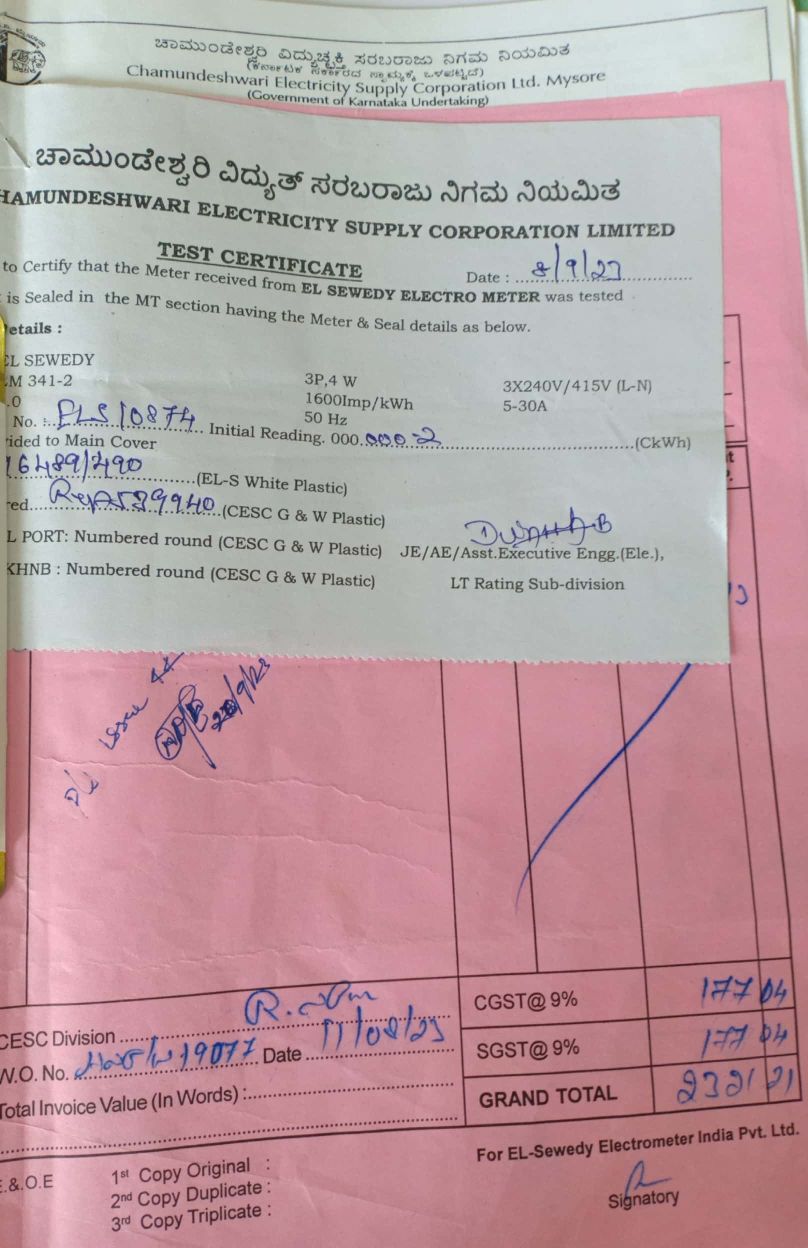 ಚಾಮುಂಡೇಶ್ವರಿ ವಿದ್ಯುಚ್ಛಕ್ತಿ ಸರಬರಾಜು ನಿಗಮ ನಿಯಮಿತ
(ಕರ್ನಾಟಕ ಸರ್ಕಾರದ ಸ್ವಾಮ್ಯಕ್ಕೆ ಒಳಪಟ್ಟಿದೆ)
Chamundeshwari Electricity Supply Corporation Ltd. Mysore
(Government of Karnataka Undertaking)
ಚಾಮುಂಡೇಶ್ವರಿ ವಿದ್ಯುತ್ ಸರಬರಾಜು ನಿಗಮ ನಿಯಮಿತ
HAMUNDESHWARI ELECTRICITY SUPPLY CORPORATION LIMITED
TEST CERTIFICATE
Date : 8/9/23
to Certify that the Meter received from EL SEWEDY ELECTRO METER was tested
is Sealed in the MT section having the Meter & Seal details as below.
etails :
EL SEWEDY
M 341-2 3P,4 W 3X240V/415V (L-N)
.0 1600Imp/kWh 5-30A
50 Hz
No. : ELS10874 Initial Reading. 000.000-2 (CkWh)
ided to Main Cover
16489/490 (EL-S White Plastic)
red 89940 (CESC G & W Plastic)
L PORT: Numbered round (CESC G & W Plastic) JE/AE/Asst.Executive Engg.(Ele.),
KHNB : Numbered round (CESC G & W Plastic) LT Rating Sub-division
issue
20/9/23
CESC Division
W.O. No. 19077 Date 11/08/23
Total Invoice Value (In Words) :
CGST@ 9% 177 04
SGST@ 9% 177 04
GRAND TOTAL 2321 21
For EL-Sewedy Electrometer India Pvt. Ltd.
Signatory
E.&.O.E
1st Copy Original :
2nd Copy Duplicate :
3rd Copy Triplicate :